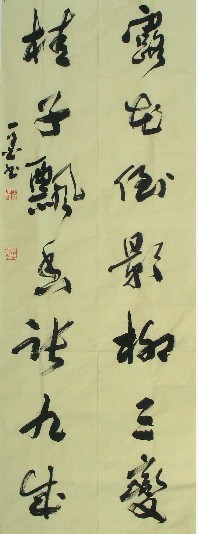 露花倒影柳三變
桂子飄香張九成
一墨书